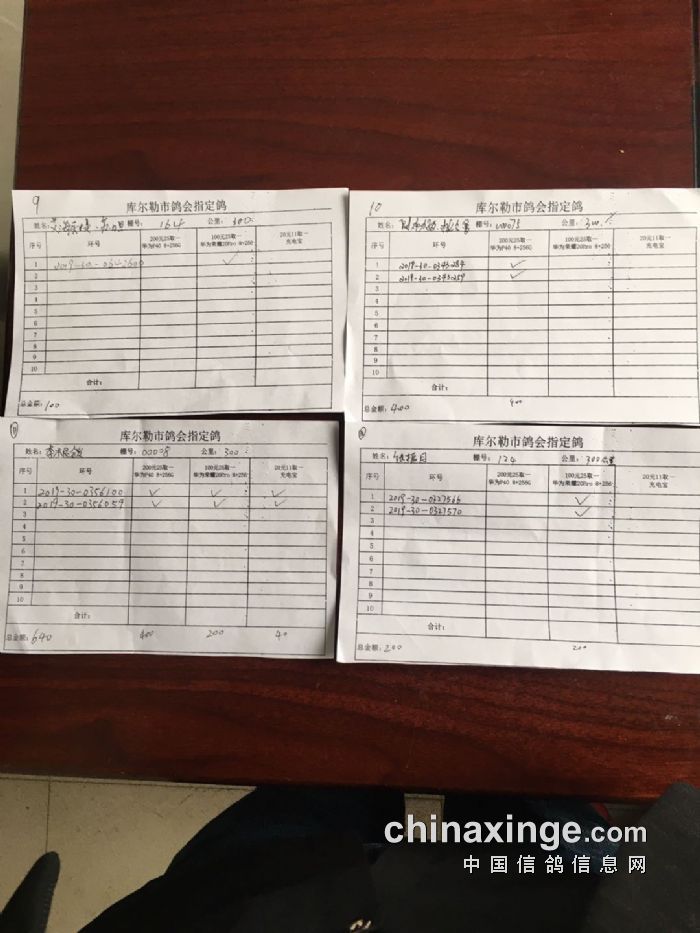 9
库尔勒市鸽会指定鸽
姓名: 棚号: 164 公里: 300
序号 环号 200元25取一 华为P40 8+256G 100元25取一 华为荣耀20Pro 8+256 20元11取一 充电宝
1 ✓
2
3
4
5
6
7
8
9
10
合计:
总金额: 100
10
库尔勒市鸽会指定鸽
姓名: 棚号: 公里: 300
序号 环号 200元25取一 华为P40 8+256G 100元25取一 华为荣耀20Pro 8+256 20元11取一 充电宝
1 2019-30-0343284 ✓
2 2019-30-0343259 ✓
3
4
5
6
7
8
9
10
合计:
总金额: 400 400
11
库尔勒市鸽会指定鸽
姓名: 棚号: 00008 公里: 300
序号 环号 200元25取一 华为P40 8+256G 100元25取一 华为荣耀20Pro 8+256 20元11取一 充电宝
1 2019-30-0356100 ✓ ✓ ✓
2 2019-30-0356059 ✓ ✓ ✓
3
4
5
6
7
8
9
10
合计:
总金额: 640 400 200 40
库尔勒市鸽会指定鸽
姓名: 棚号: 124 公里: 300公里
序号 环号 200元25取一 华为P40 8+256G 100元25取一 华为荣耀20Pro 8+256 20元11取一 充电宝
1 2019-30-0327566 ✓
2 2019-30-0327570 ✓
3
4
5
6
7
8
9
10
合计:
总金额: 200 200
chinaxinge.com
中国信鸽信息网